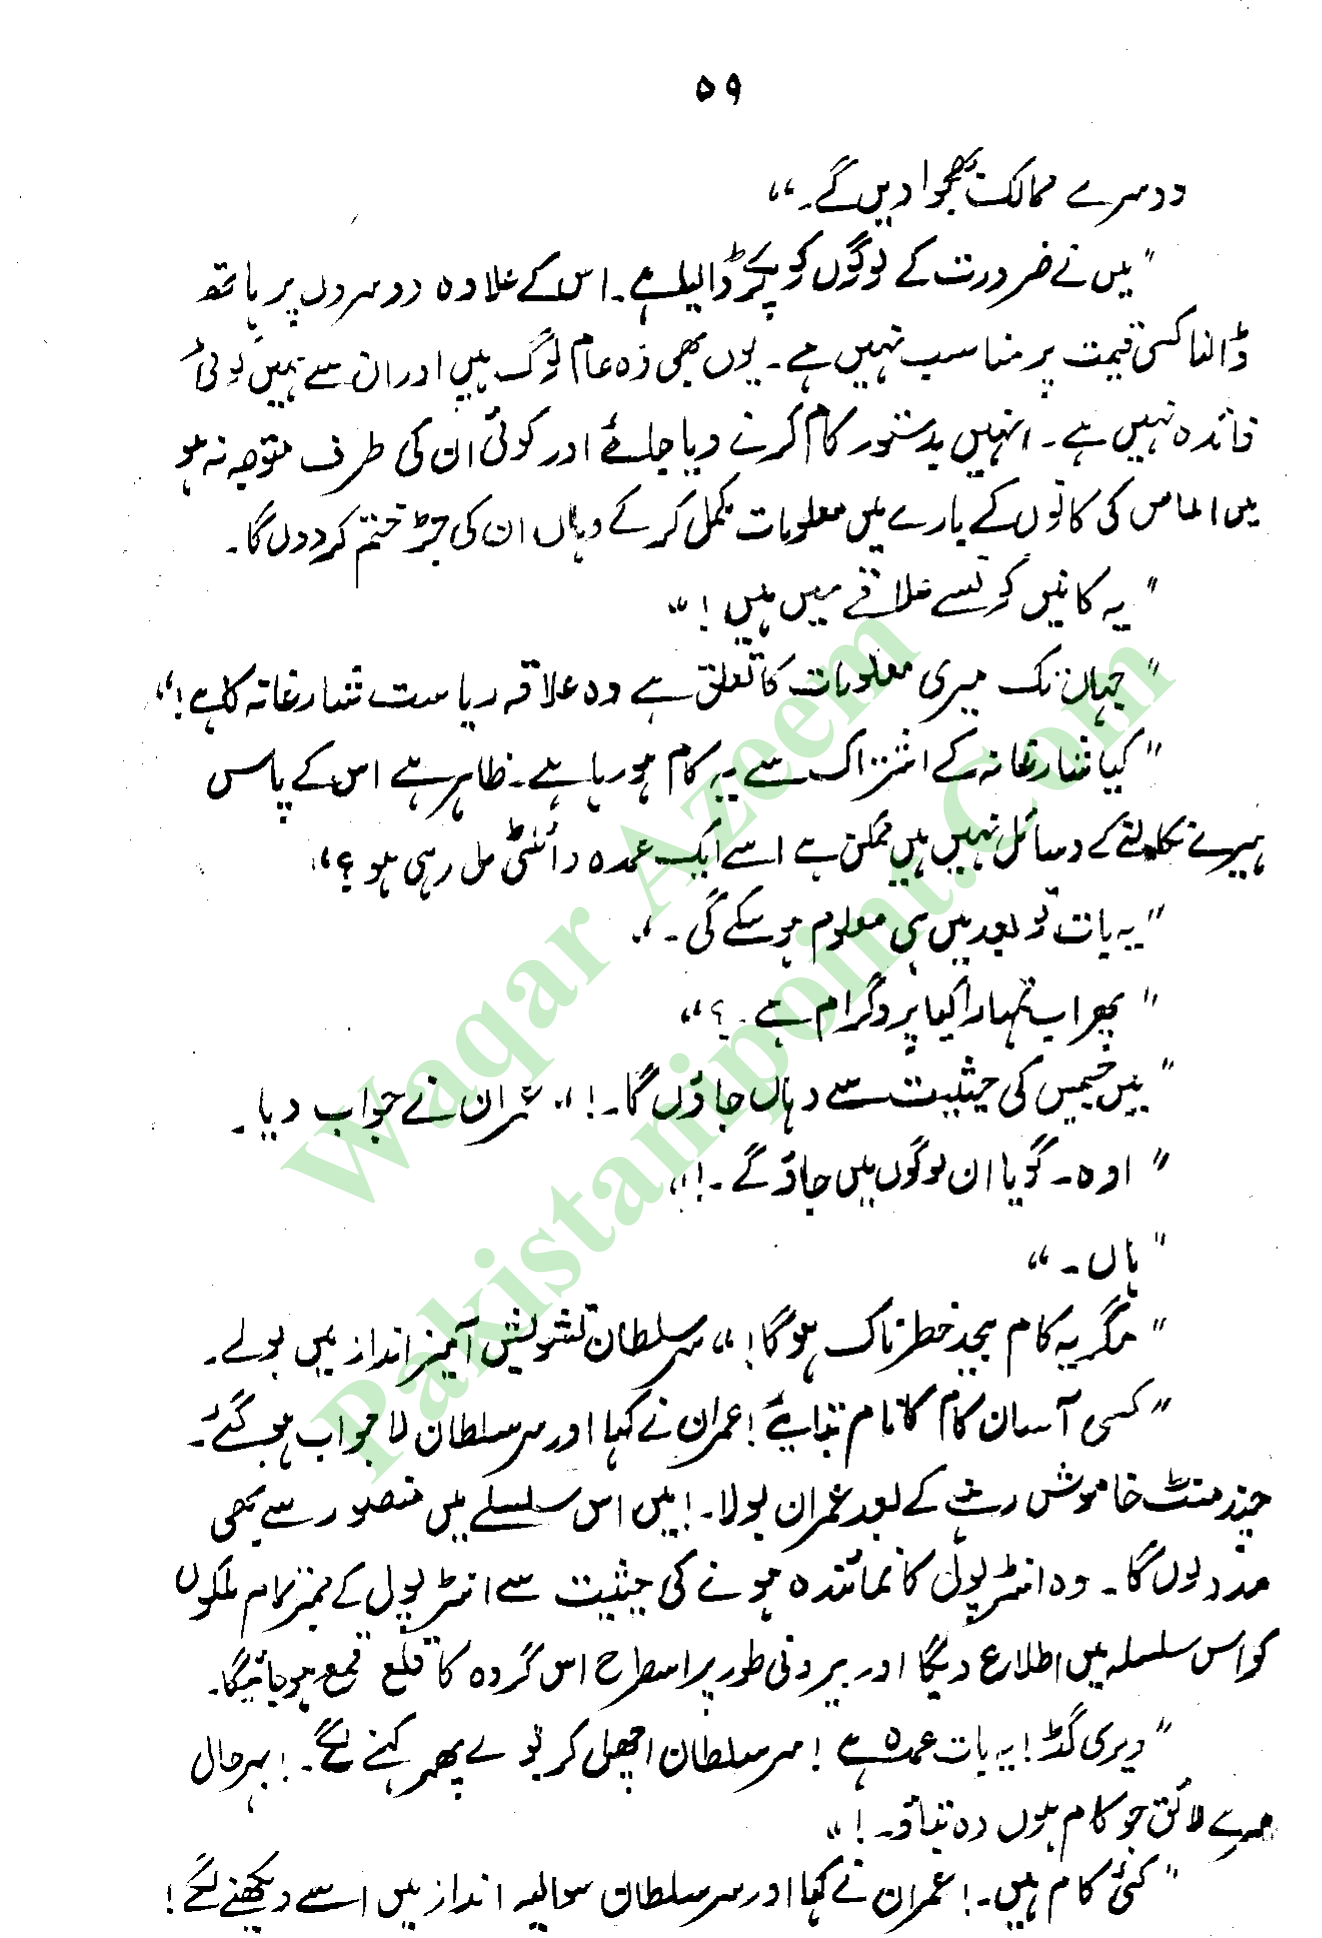 ۵۹
دوسرے ممالک بھجوا دیں گے۔"
"میں نے ضرورت کے لوگوں کو پکڑوا لیا ہے۔ اس کے علاوہ دوسروں پر ہاتھ
ڈالنا کسی قیمت پر مناسب نہیں ہے۔ یوں بھی وہ عام لوگ ہیں اور ان سے ہمیں کوئی
فائدہ نہیں ہے۔ انہیں بدستور کام کرنے دیا جائے اور کوئی ان کی طرف متوجہ نہ ہو
میں الماس کی کانوں کے بارے میں معلومات مکمل کر کے وہاں ان کی جڑ ختم کر دوں گا۔
"یہ کانیں کونسے علاقے میں ہیں!"
"جہاں تک میری معلومات کا تعلق ہے وہ علاقہ ریاست شارغانہ کا ہے!"
"کیا شارغانہ کے اشتراک سے یہ کام ہو رہا ہے۔ ظاہر ہے اس کے پاس
ہیرے نکالنے کے وسائل نہیں ہیں ممکن ہے اسے ایک عمدہ رائلٹی مل رہی ہو؟"
"یہ بات تو بعد میں ہی معلوم ہو سکے گی۔"
"پھر اب تمہارا کیا پروگرام ہے۔؟"
"میں جیمس کی حیثیت سے وہاں جاؤں گا۔!" عمران نے جواب دیا۔
"اوہ۔ گویا ان لوگوں میں جاؤ گے۔!"
"ہاں۔"
"مگر یہ کام بیحد خطرناک ہو گا!" سر سلطان تشویش آمیز انداز میں بولے۔
"کسی آسان کام کا نام بتائیے! عمران نے کہا اور سر سلطان لاجواب ہو گئے۔
چند منٹ خاموش رہنے کے بعد عمران بولا۔! میں اس سلسلے میں منصور سے بھی
مدد لوں گا۔ وہ انٹرپول کا نمائندہ ہونے کی حیثیت سے انٹرپول کے ممبر تمام ملکوں
کو اس سلسلہ میں اطلاع دیگا اور بیرونی طور پر اسطرح اس گروہ کا قلع قمع ہو جائیگا۔
"ویری گڈ! یہ بات عمدہ ہے! سر سلطان اچھل کر بولے پھر کہنے لگے۔! بہرحال
میرے لائق جو کام ہوں وہ بتاؤ۔!"
"کئی کام ہیں۔! عمران نے کہا اور سر سلطان سوالیہ انداز میں اسے دیکھنے لگے!
Waqar Azeem
Pakistanipoint.Com